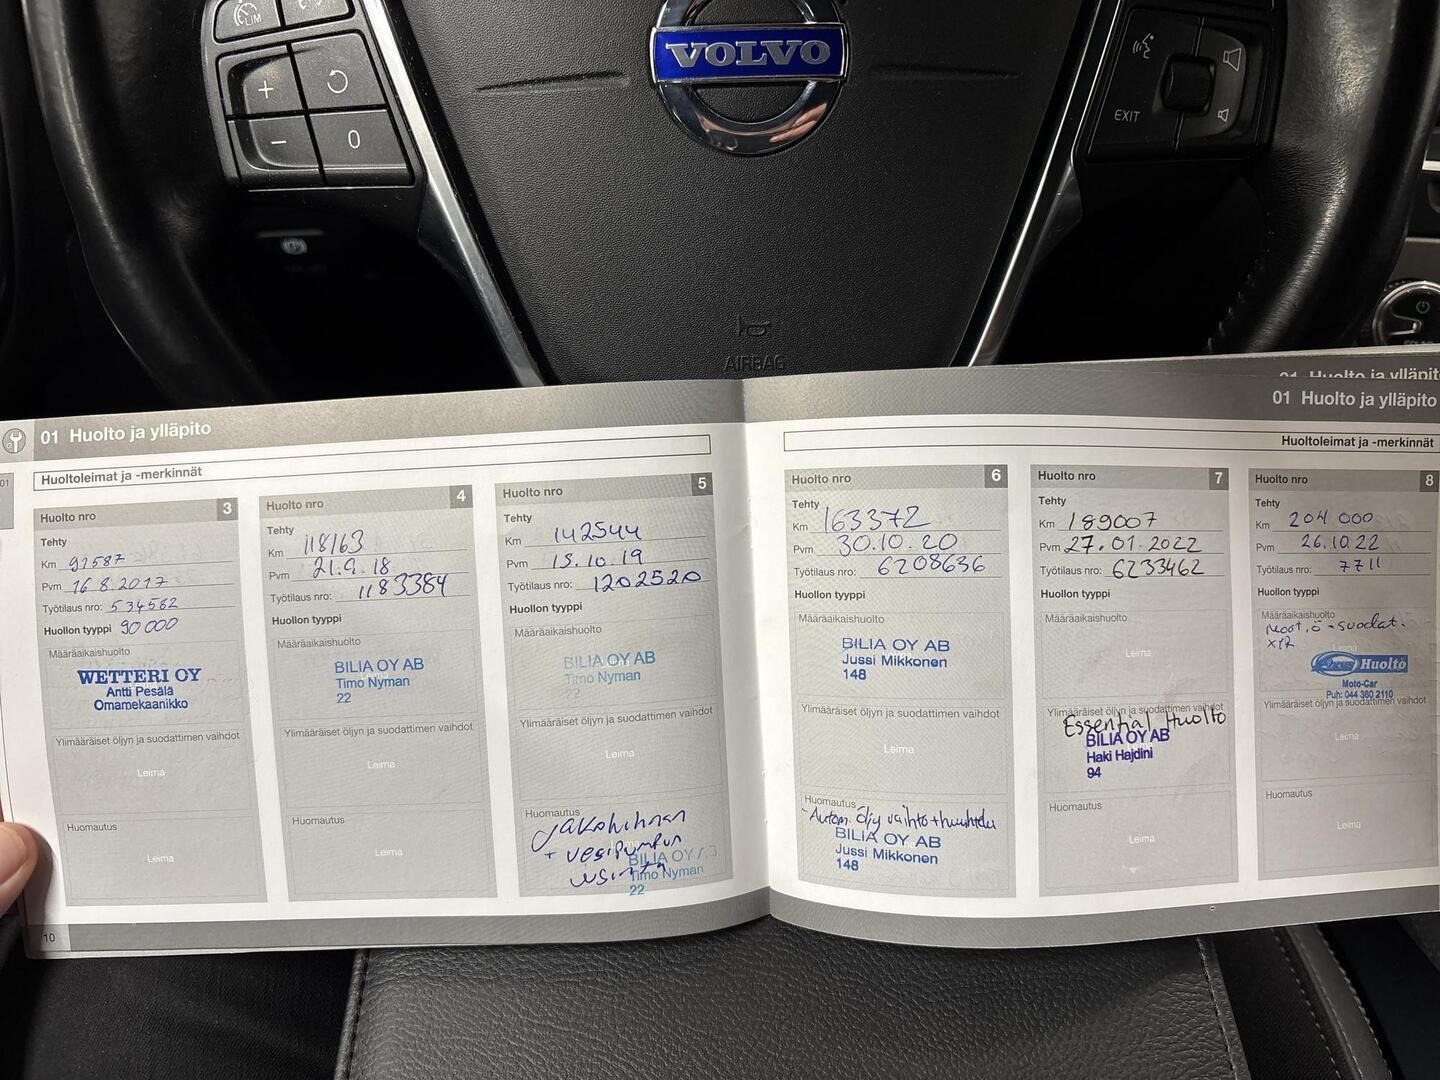 LIM
+
−
0
VOLVO
EXIT
AIRBAG
01 Huolto ja ylläpito
Huoltoleimat ja -merkinnät
01
Huolto nro 3
Tehty
Km 91587
Pvm 16.8.2017
Työtilaus nro: 534562
Huollon tyyppi 90 000
Määräaikaishuolto
WETTERI OY
Antti Pesälä
Omamekaanikko
Ylimääräiset öljyn ja suodattimen vaihdot
Leima
Huomautus
Leima
10
Huolto nro 4
Tehty
Km 118163
Pvm 21.9.18
Työtilaus nro: 1183384
Huollon tyyppi
Määräaikaishuolto
BILIA OY AB
Timo Nyman
22
Ylimääräiset öljyn ja suodattimen vaihdot
Leima
Huomautus
Leima
Huolto nro 5
Tehty
Km 142544
Pvm 15.10.19
Työtilaus nro: 1202520
Huollon tyyppi
Määräaikaishuolto
BILIA OY AB
Timo Nyman
22
Ylimääräiset öljyn ja suodattimen vaihdot
Leima
Huomautus
Jakohihnan
+ vesipumpun
usinta
BILIA OY AB
Timo Nyman
22
01 Huolto ja ylläpito
01 Huolto ja ylläpito
Huoltoleimat ja -merkinnät
Huolto nro 6
Tehty
Km 163372
Pvm 30.10.20
Työtilaus nro: 6208636
Huollon tyyppi
Määräaikaishuolto
BILIA OY AB
Jussi Mikkonen
148
Ylimääräiset öljyn ja suodattimen vaihdot
Leima
Huomautus
- Autom. öljy vaihto + huuhtelu
BILIA OY AB
Jussi Mikkonen
148
Huolto nro 7
Tehty
Km 189007
Pvm 27.01.2022
Työtilaus nro: 6233462
Huollon tyyppi
Määräaikaishuolto
Leima
Ylimääräiset öljyn ja suodattimen vaihdot
Essential Huolto
BILIA OY AB
Haki Hajdini
94
Huomautus
Leima
Huolto nro 8
Tehty
Km 204 000
Pvm 26.10.22
Työtilaus nro: 7711
Huollon tyyppi
Määräaikaishuolto
moot.ö-suodat.
Leima
Huolto
Moto-Car
Puh: 044 360 2110
Ylimääräiset öljyn ja suodattimen vaihdot
Leima
Huomautus
Leima